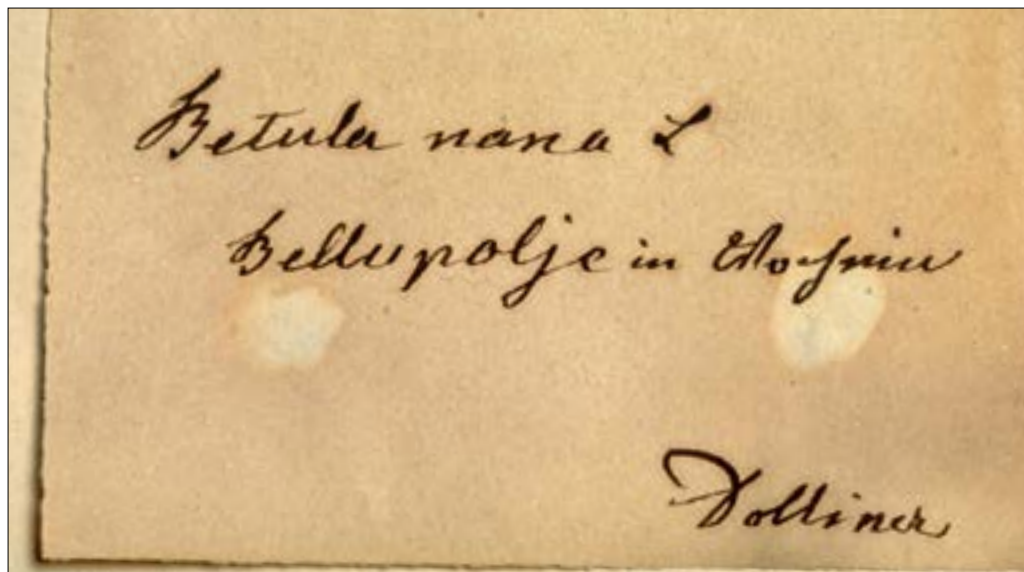 Betula nana L
Bellupolje in Wochein
Dolliner